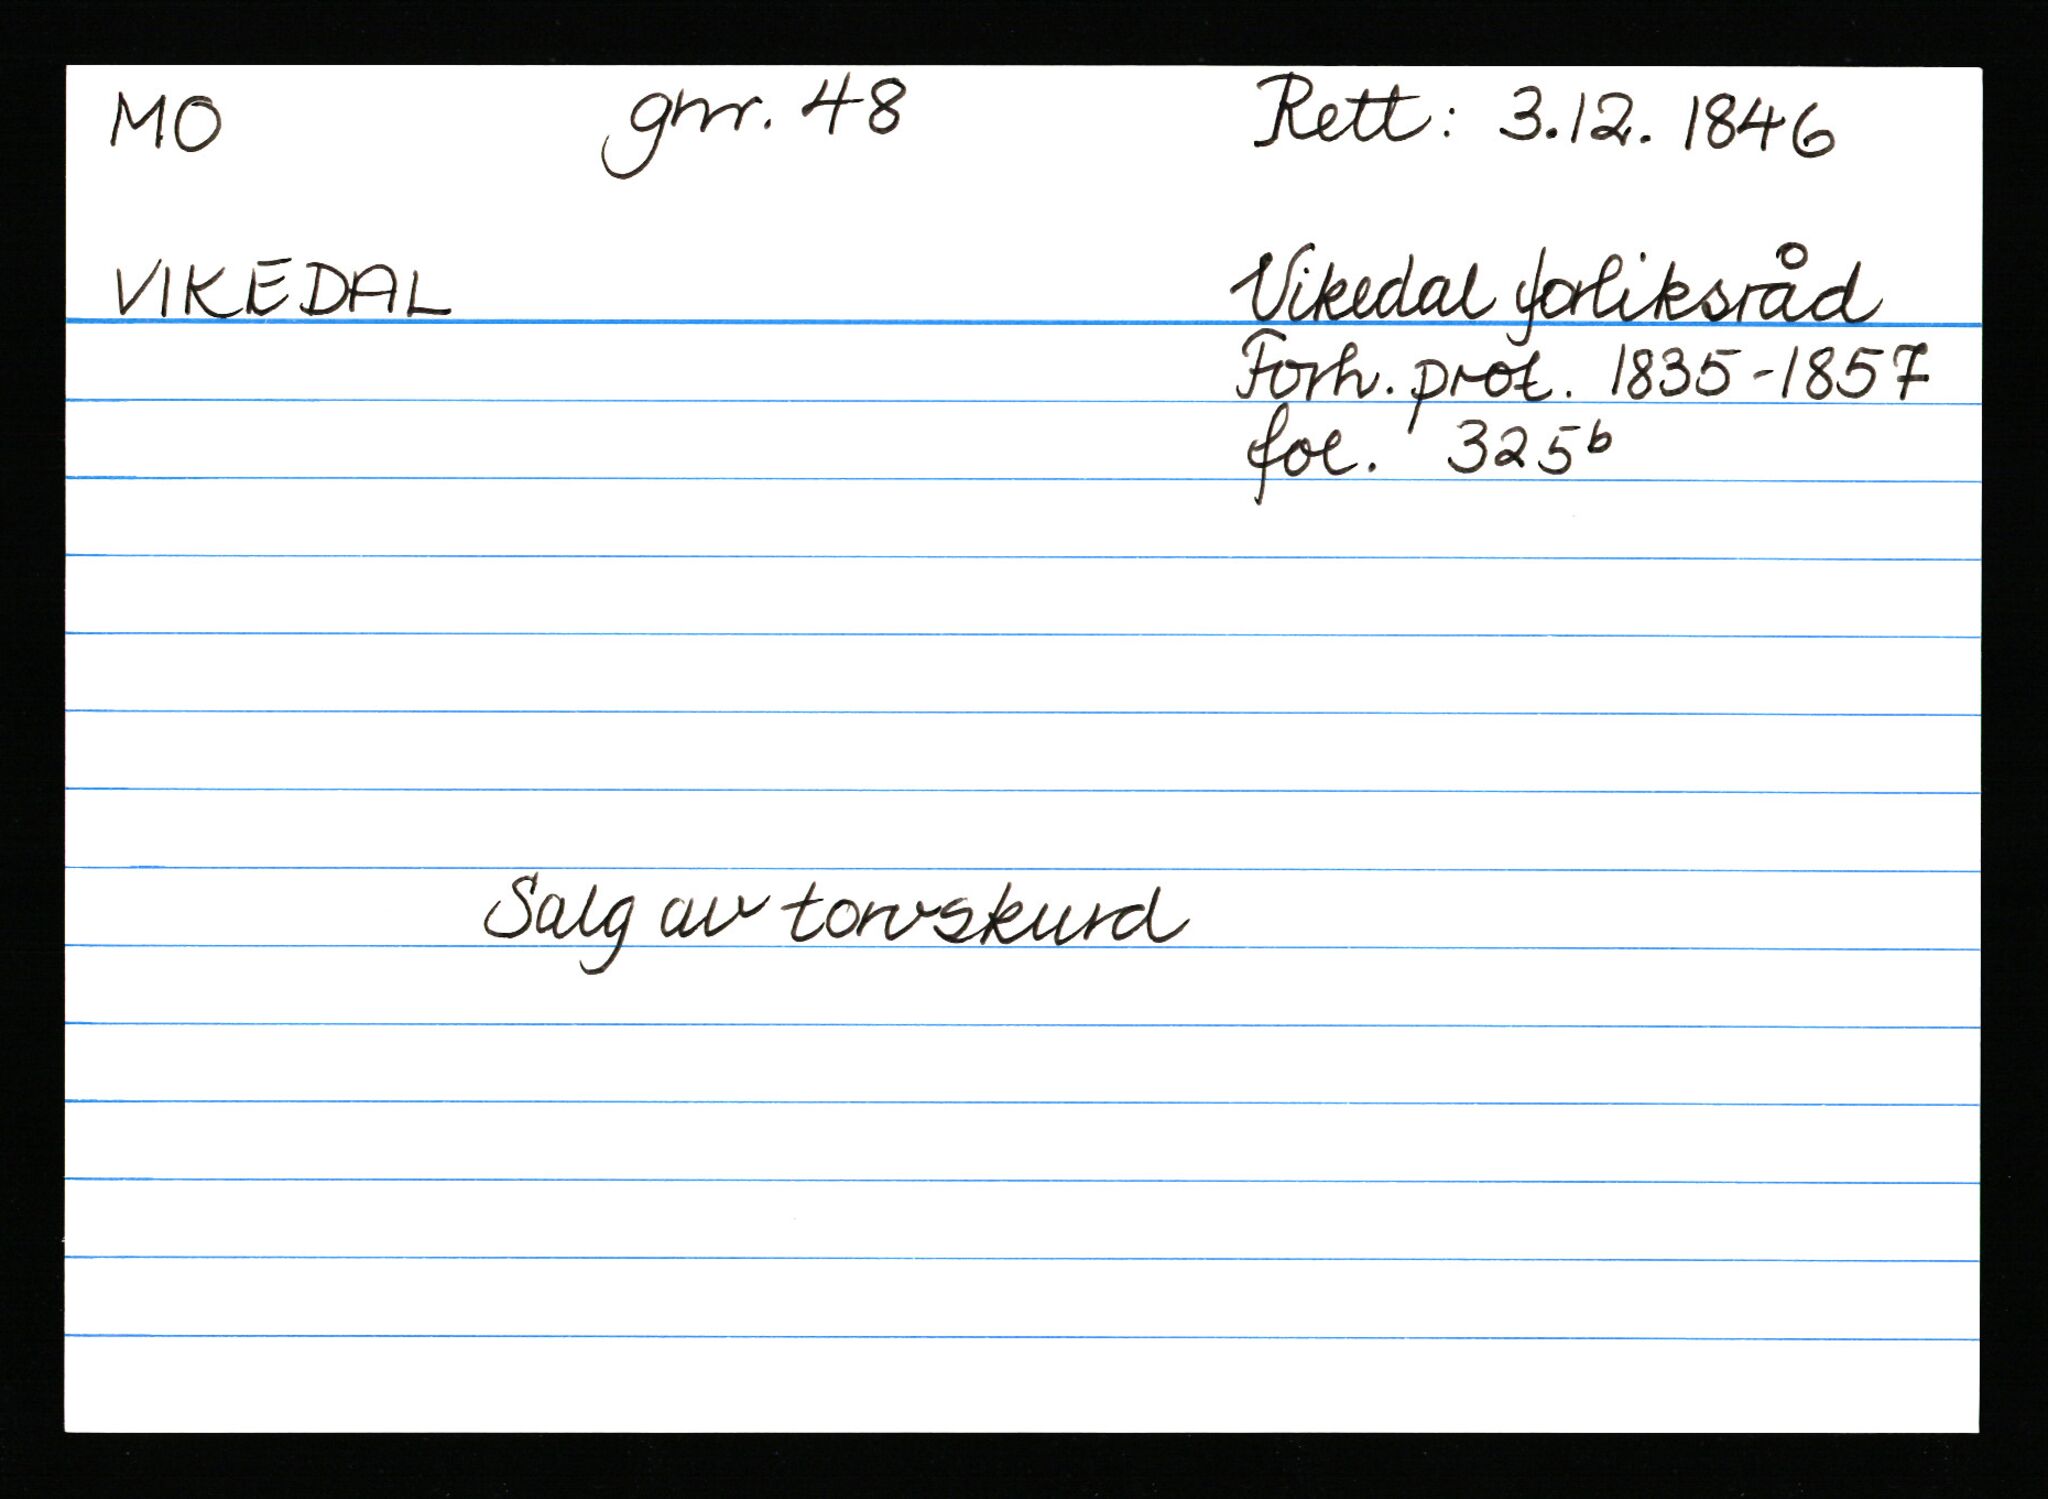 MO gnr. 48 Rett: 3.12. 1846
VIKEDAL Vikedal forliksråd
Forh. prot. 1835-1857
fol. 325b
Salg av torvskurd